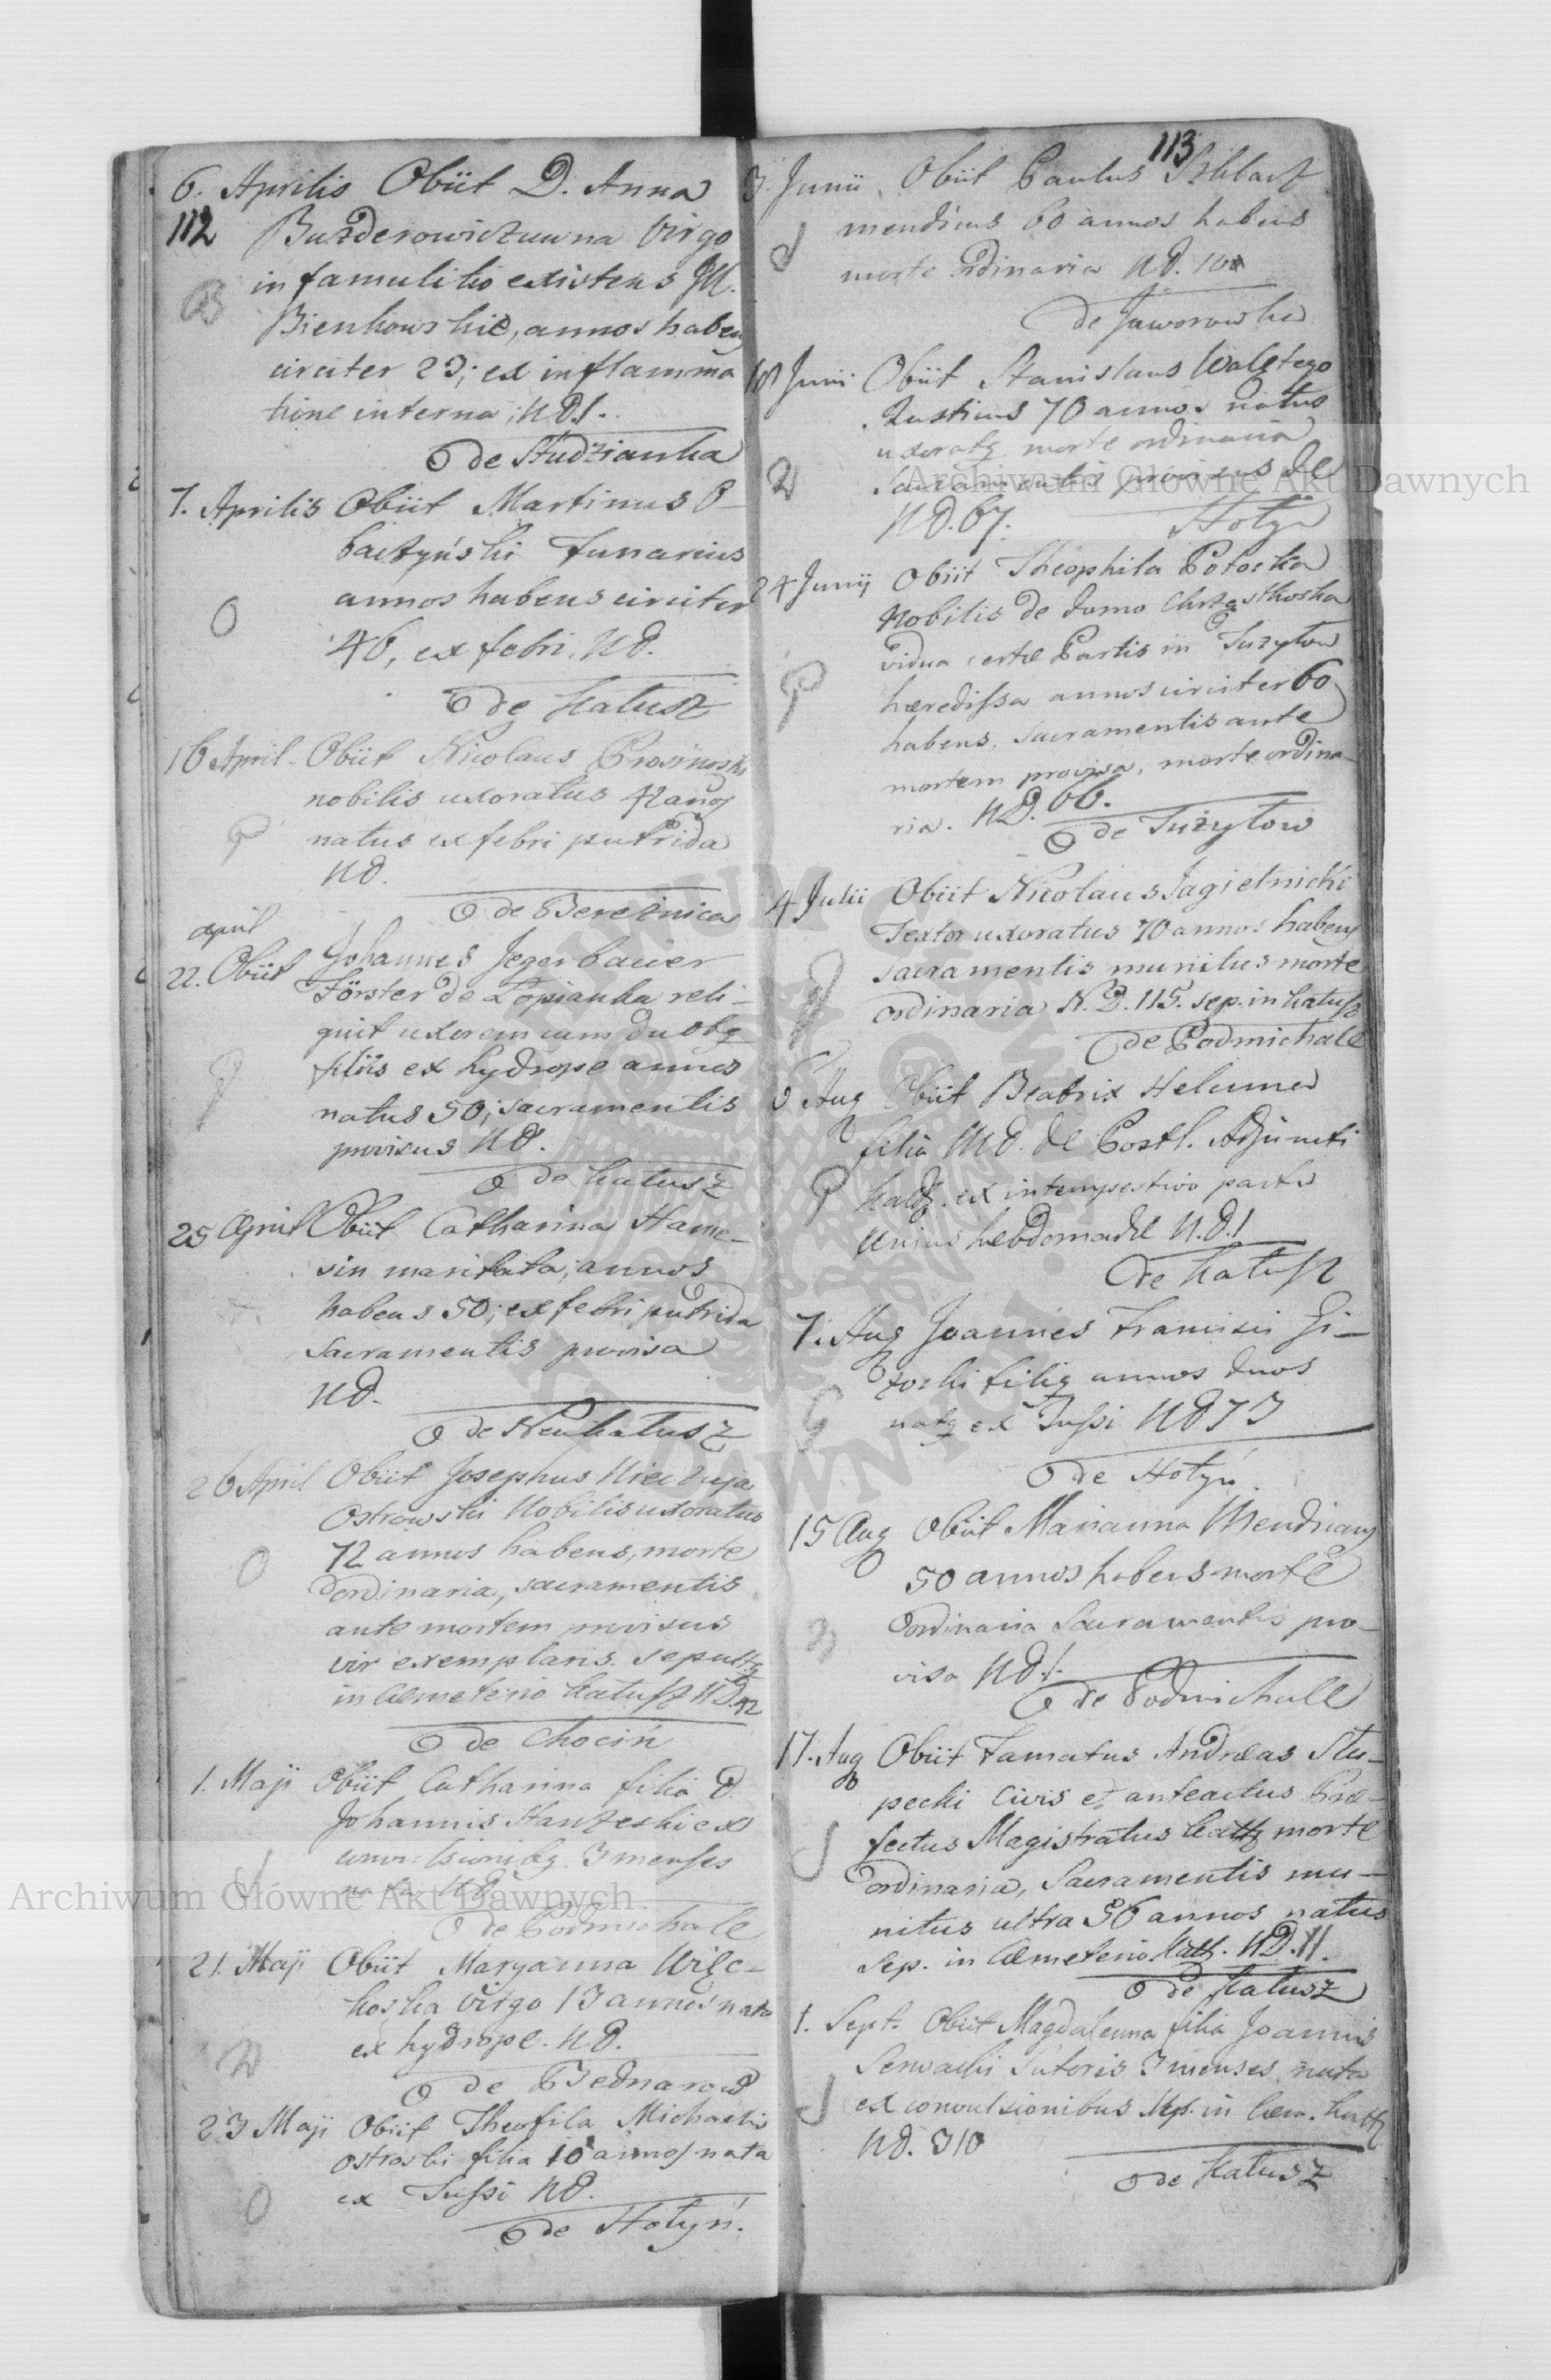 6. Aprilis Obiit D. Anna
112 Buzderowiczuwna Virgo
in famulitio existens M.
Bienkowskie, annos habens
circiter 23; ex inflamma
tione interna; ND1.
de Studzianka
7. Aprilis Obiit Martinus O-
baczyński funarius
annos habens circiter
46, ex febri. ND.
de Kałusz
16 April. Obiit Nicolaus
nobilis uxoratus 42 annos
natus ex febri putrida
ND.
de Bereźnica
april
22. Obiit Johannes Jegerbauer
Förster de Łopianka reli-
quit uxorem cum duobq
filiis ex hydrope annos
natus 50; sacramentis
provisus ND.
de Kałusz
25 April Obiit Catharina Hame-
sin maritata; annos
habens 50; ex febri putrida
Sacramentis provisa
ND.
de Neukałusz
26 April Obiit Josephus Nieczuja
Ostrowski Nobilis uxoratus
72 annos habens, morte
ordinaria, sacramentis
ante mortem provisus
vir exemplaris. sepultq
in Cæmeterio Kałusz ND.42
de Chocin
1. Maji Obiit Catharina filia D.
Johannis Hanzeski ex
convulsionibq 3 menses
nata ND
de Podmichale
21. Maji Obiit Maryanna Wilc-
koska Virgo 13 annos nata
ex hydrope. ND.
de Bednarow
23 Maji Obiit Theofila Michaelis
Ostroski filia 10 annos nata
ex Tussi ND.
de Hołyń.
113
3. Junii Obiit Paulus
mendicus 60 annos habens
morte ordinaria ND. 10
de Jaworowka
18 Junii Obiit Stanislaus Walętego
Rusticus 70 annos natus
uxoratq morte ordinaria
Sacramentis provisus de
ND. 67. Hołyń
24 Junij Obiit Theophila Potocka
Nobilis de domo Chrząstkoska
vidua certæ Partis in Tużyłow
hæredissa annos circiter 60
habens, sacramentis ante
mortem provisa, morte ordina-
ria. ND. 66.
de Tużyłow
4 Julii Obiit Nicolaus Jagielnicki
Textor uxoratus 70 annos habens
sacramentis munitus morte
ordinaria N.D. 115. sep. in Kałusz
de Podmichale
6 Aug Obiit Beatrix Helenna
filia MD. de Postl. Adjuncti
Kałq. ex intempestivo partu
Unius hebdomadæ N.D.1
de Kałusz
7. Aug Joannes Francisci Gi-
zoski filiq annos duos
natq ex Tussi ND 73
de Hołyń
15 Aug Obiit Marianna Mendicans
50 annos habens morte
ordinaria Sacramentis pro-
visa ND 1.
de Podmichale
17. Aug Obiit Famatus Andreas Słu-
pecki Civis et anteactus Præ-
fectus Magistratus Kałq morte
ordinaria, Sacramentis mu-
nitus ultra 56 annos natus
Sep. in Cæmeterio Kałq. ND.11.
de Kałusz
1. Sept. Obiit Magdalenna filia Joannis
Senwacki Sutoris 3 menses nata
ex convulsionibus sep. in Cæm. Kałq
ND. 310
de Kałusz
Archiwum Główne Akt Dawnych
Archiwum Główne Akt Dawnych